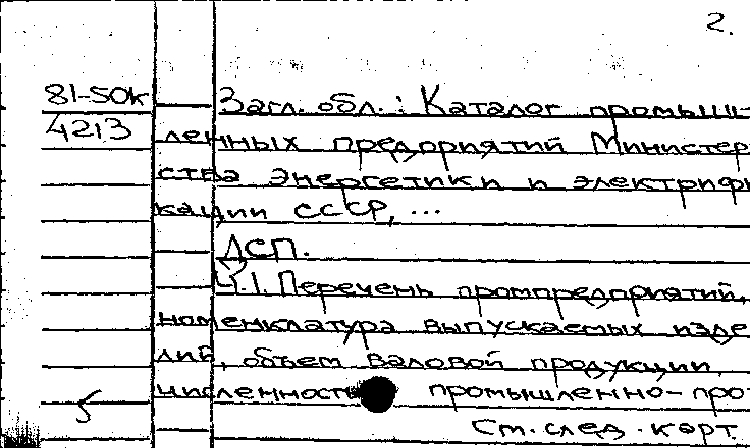 2.
81-50к
4213
Загл. обл.: Каталог промыш-
ленных предприятий Министер
ства энергетики и электрифи
кации СССР, ...
ДСП.
Ч.1. Перечень промпредприятий,
номенклатура выпускаемых изде
лий, объем валовой продукции,
численность промышленно-про
См. след. карт.